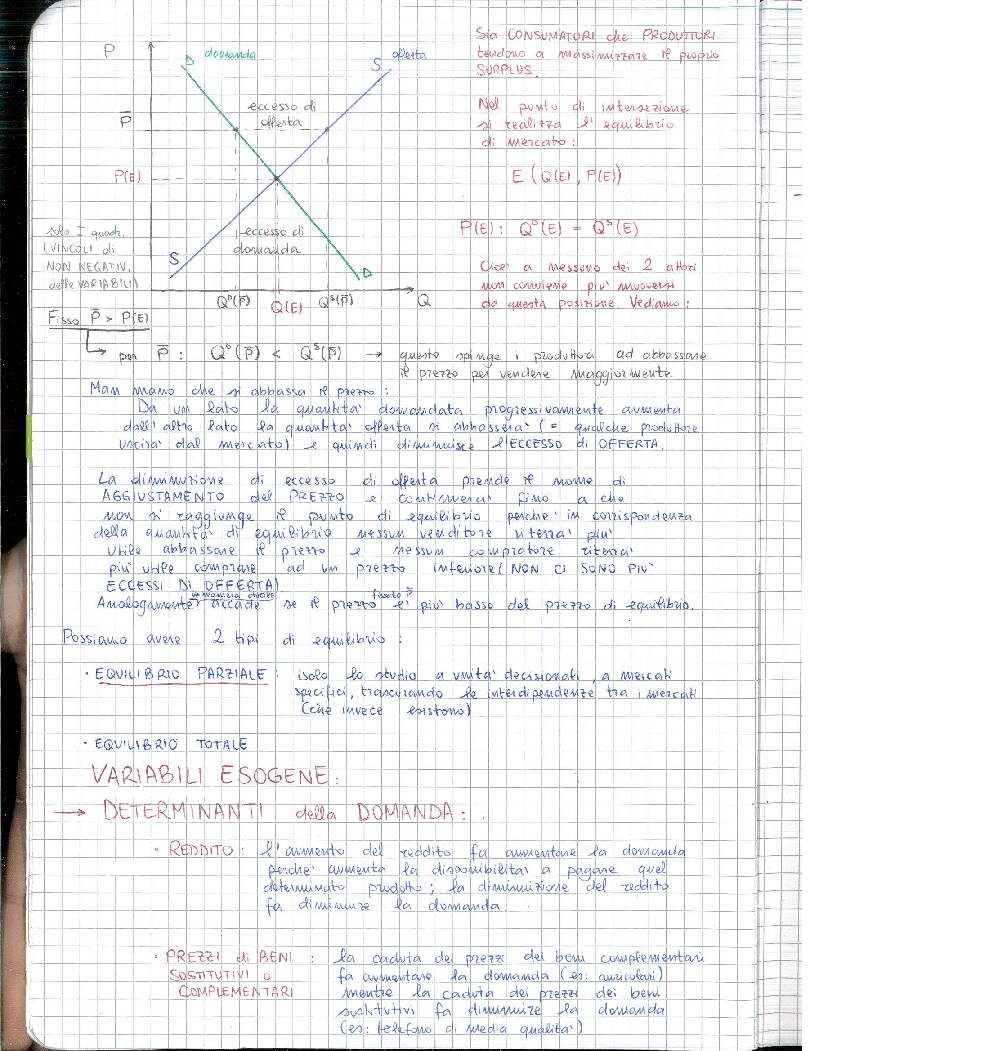 P
D domanda
S offerta
eccesso di
offerta
P̅
P(E)
eccesso di
domanda
solo I quadr.
(VINCOLI di
NON NEGATIV.
delle VARIABILI)
S
D
Qᴰ(P̅)
Q(E)
Qˢ(P̅)
Q
Sia CONSUMATORI che PRODUTTORI
tendono a massimizzare il proprio
SURPLUS.
Nel punto di intersezione
si realizza l'equilibrio
di mercato:
E (Q(E), P(E))
P(E): Qᴰ(E) = Qˢ(E)
Cioè a nessuno dei 2 attori
non conviene più muoversi
da questa posizione. Vediamo:
Fisso P̅ > P(E)
per P̅ : Qᴰ(P̅) < Qˢ(P̅) → questo spinge i produttori ad abbassare
il prezzo per vendere maggiormente.
Man mano che si abbassa il prezzo:
Da un lato la quantità domandata progressivamente aumenta
dall'altro lato la quantità offerta si abbasserà (= qualche produttore
uscirà dal mercato) e quindi diminuisce l'ECCESSO di OFFERTA.
La diminuzione di eccesso di offerta prende il nome di
AGGIUSTAMENTO del PREZZO e continuerà fino a che
non si raggiunge il punto di equilibrio perché in corrispondenza
della quantità di equilibrio nessun venditore riterrà più
utile abbassare il prezzo e nessun compratore riterrà
più utile comprare ad un prezzo inferiore (NON CI SONO PIÙ
ECCESSI DI OFFERTA)
in maniera duale
fissato P̅
Analogamente accade se il prezzo è più basso del prezzo di equilibrio.
Possiamo avere 2 tipi di equilibrio:
· EQUILIBRIO PARZIALE: isolo lo studio a unità decisionali, a mercati
specifici, trascurando le interdipendenze tra i mercati
(che invece esistono)
· EQUILIBRIO TOTALE
VARIABILI ESOGENE:
→ DETERMINANTI della DOMANDA:
· REDDITO: l'aumento del reddito fa aumentare la domanda
perché aumenta la disponibilità a pagare quel
determinato prodotto; la diminuizione del reddito
fa diminuire la domanda.
· PREZZI di BENI : la caduta dei prezzi dei beni complementari
SOSTITUTIVI o fa aumentare la domanda (es: auricolari)
COMPLEMENTARI mentre la caduta dei prezzi dei beni
sostitutivi fa diminuire la domanda
(es: telefono di media qualità)